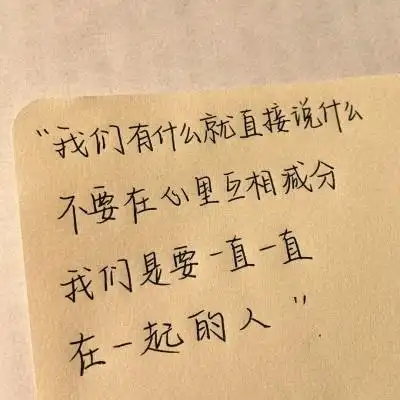 “我们有什么就直接说什么
不要在心里互相减分
我们是要一直一直
在一起的人”